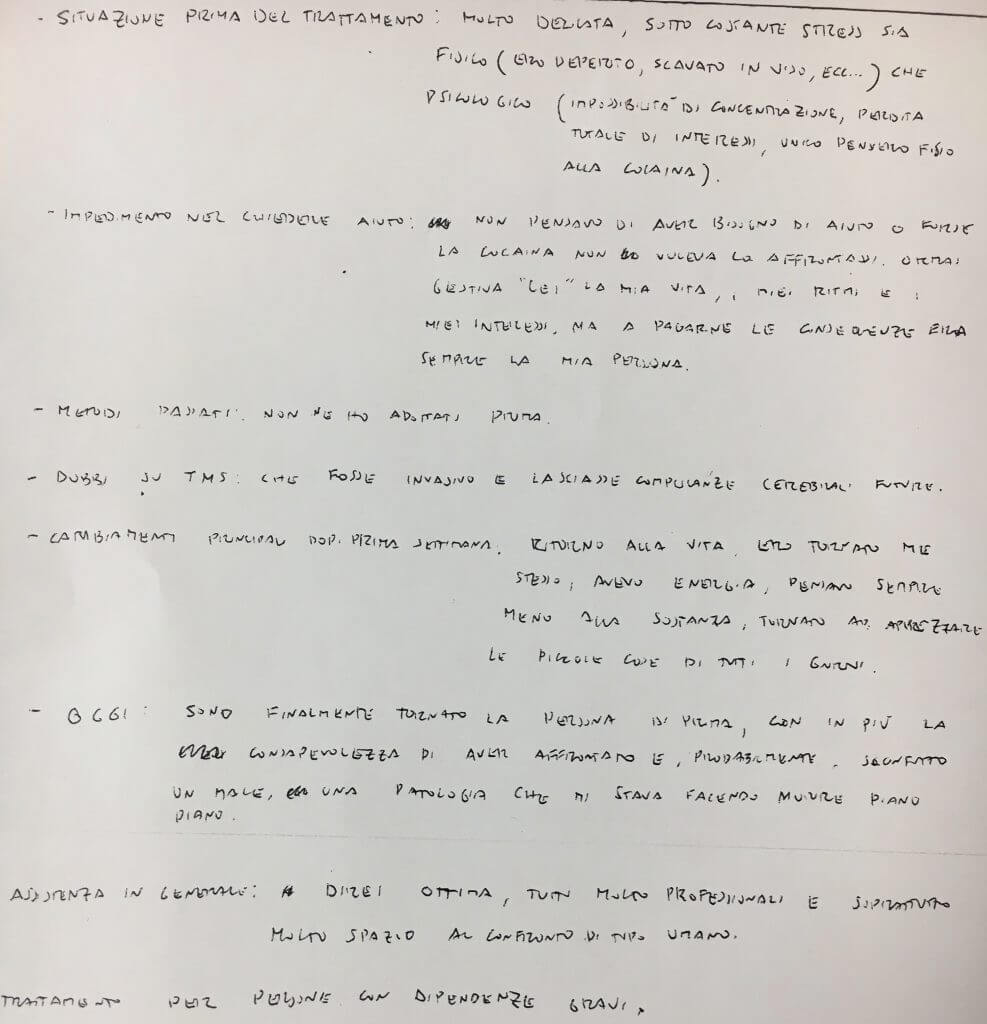 - SITUAZIONE PRIMA DEL TRATTAMENTO: MOLTO DELICATA, SOTTO COSTANTE STRESS SIA
FISICO (ERO DEPERITO, SCAVATO IN VISO, ECC...) CHE
PSICOLOGICO (IMPOSSIBILITÀ DI CONCENTRAZIONE, PERDITA
TOTALE DI INTERESSI, UNICO PENSIERO FISSO
ALLA COCAINA).
- IMPEDIMENTO NEL CHIEDERE AIUTO: NON PENSAVO DI AVER BISOGNO DI AIUTO O FORSE
LA COCAINA NON VOLEVA LO AFFRONTASSI. ORMAI
GESTIVA "LEI" LA MIA VITA, I MIEI RITMI E I
MIEI INTERESSI, MA A PAGARNE LE CONSEQUENZE ERA
SEMPRE LA MIA PERSONA.
- METODI PASSATI: NON NE HO ADOTTATI PRIMA.
- DUBBI SU TMS: CHE FOSSE INVASIVO E LASCIASSE COMPLICANZE CEREBRALI FUTURE.
- CAMBIAMENTI PRINCIPALI DOPO PRIMA SETTIMANA: RITORNO ALLA VITA. ERO TORNATO ME
STESSO; AVEVO ENERGIA, PENSAVO SEMPRE
MENO ALLA SOSTANZA, TORNATO AD APPREZZARE
LE PICCOLE COSE DI TUTTI I GIORNI.
- OGGI: SONO FINALMENTE TORNATO LA PERSONA DI PRIMA, CON IN PIÙ LA
CONSAPEVOLEZZA DI AVER AFFRONTATO E, PROBABILMENTE, SCONFITTO
UN MALE, UNA PATOLOGIA CHE MI STAVA FACENDO MORIRE PIANO
PIANO.
ASSISTENZA IN GENERALE: DIREI OTTIMA, TUTTI MOLTO PROFESSIONALI E SOPRATTUTTO
MOLTO SPAZIO AL CONFRONTO DI TIPO UMANO.
TRATTAMENTO PER PERSONE CON DIPENDENZE GRAVI.